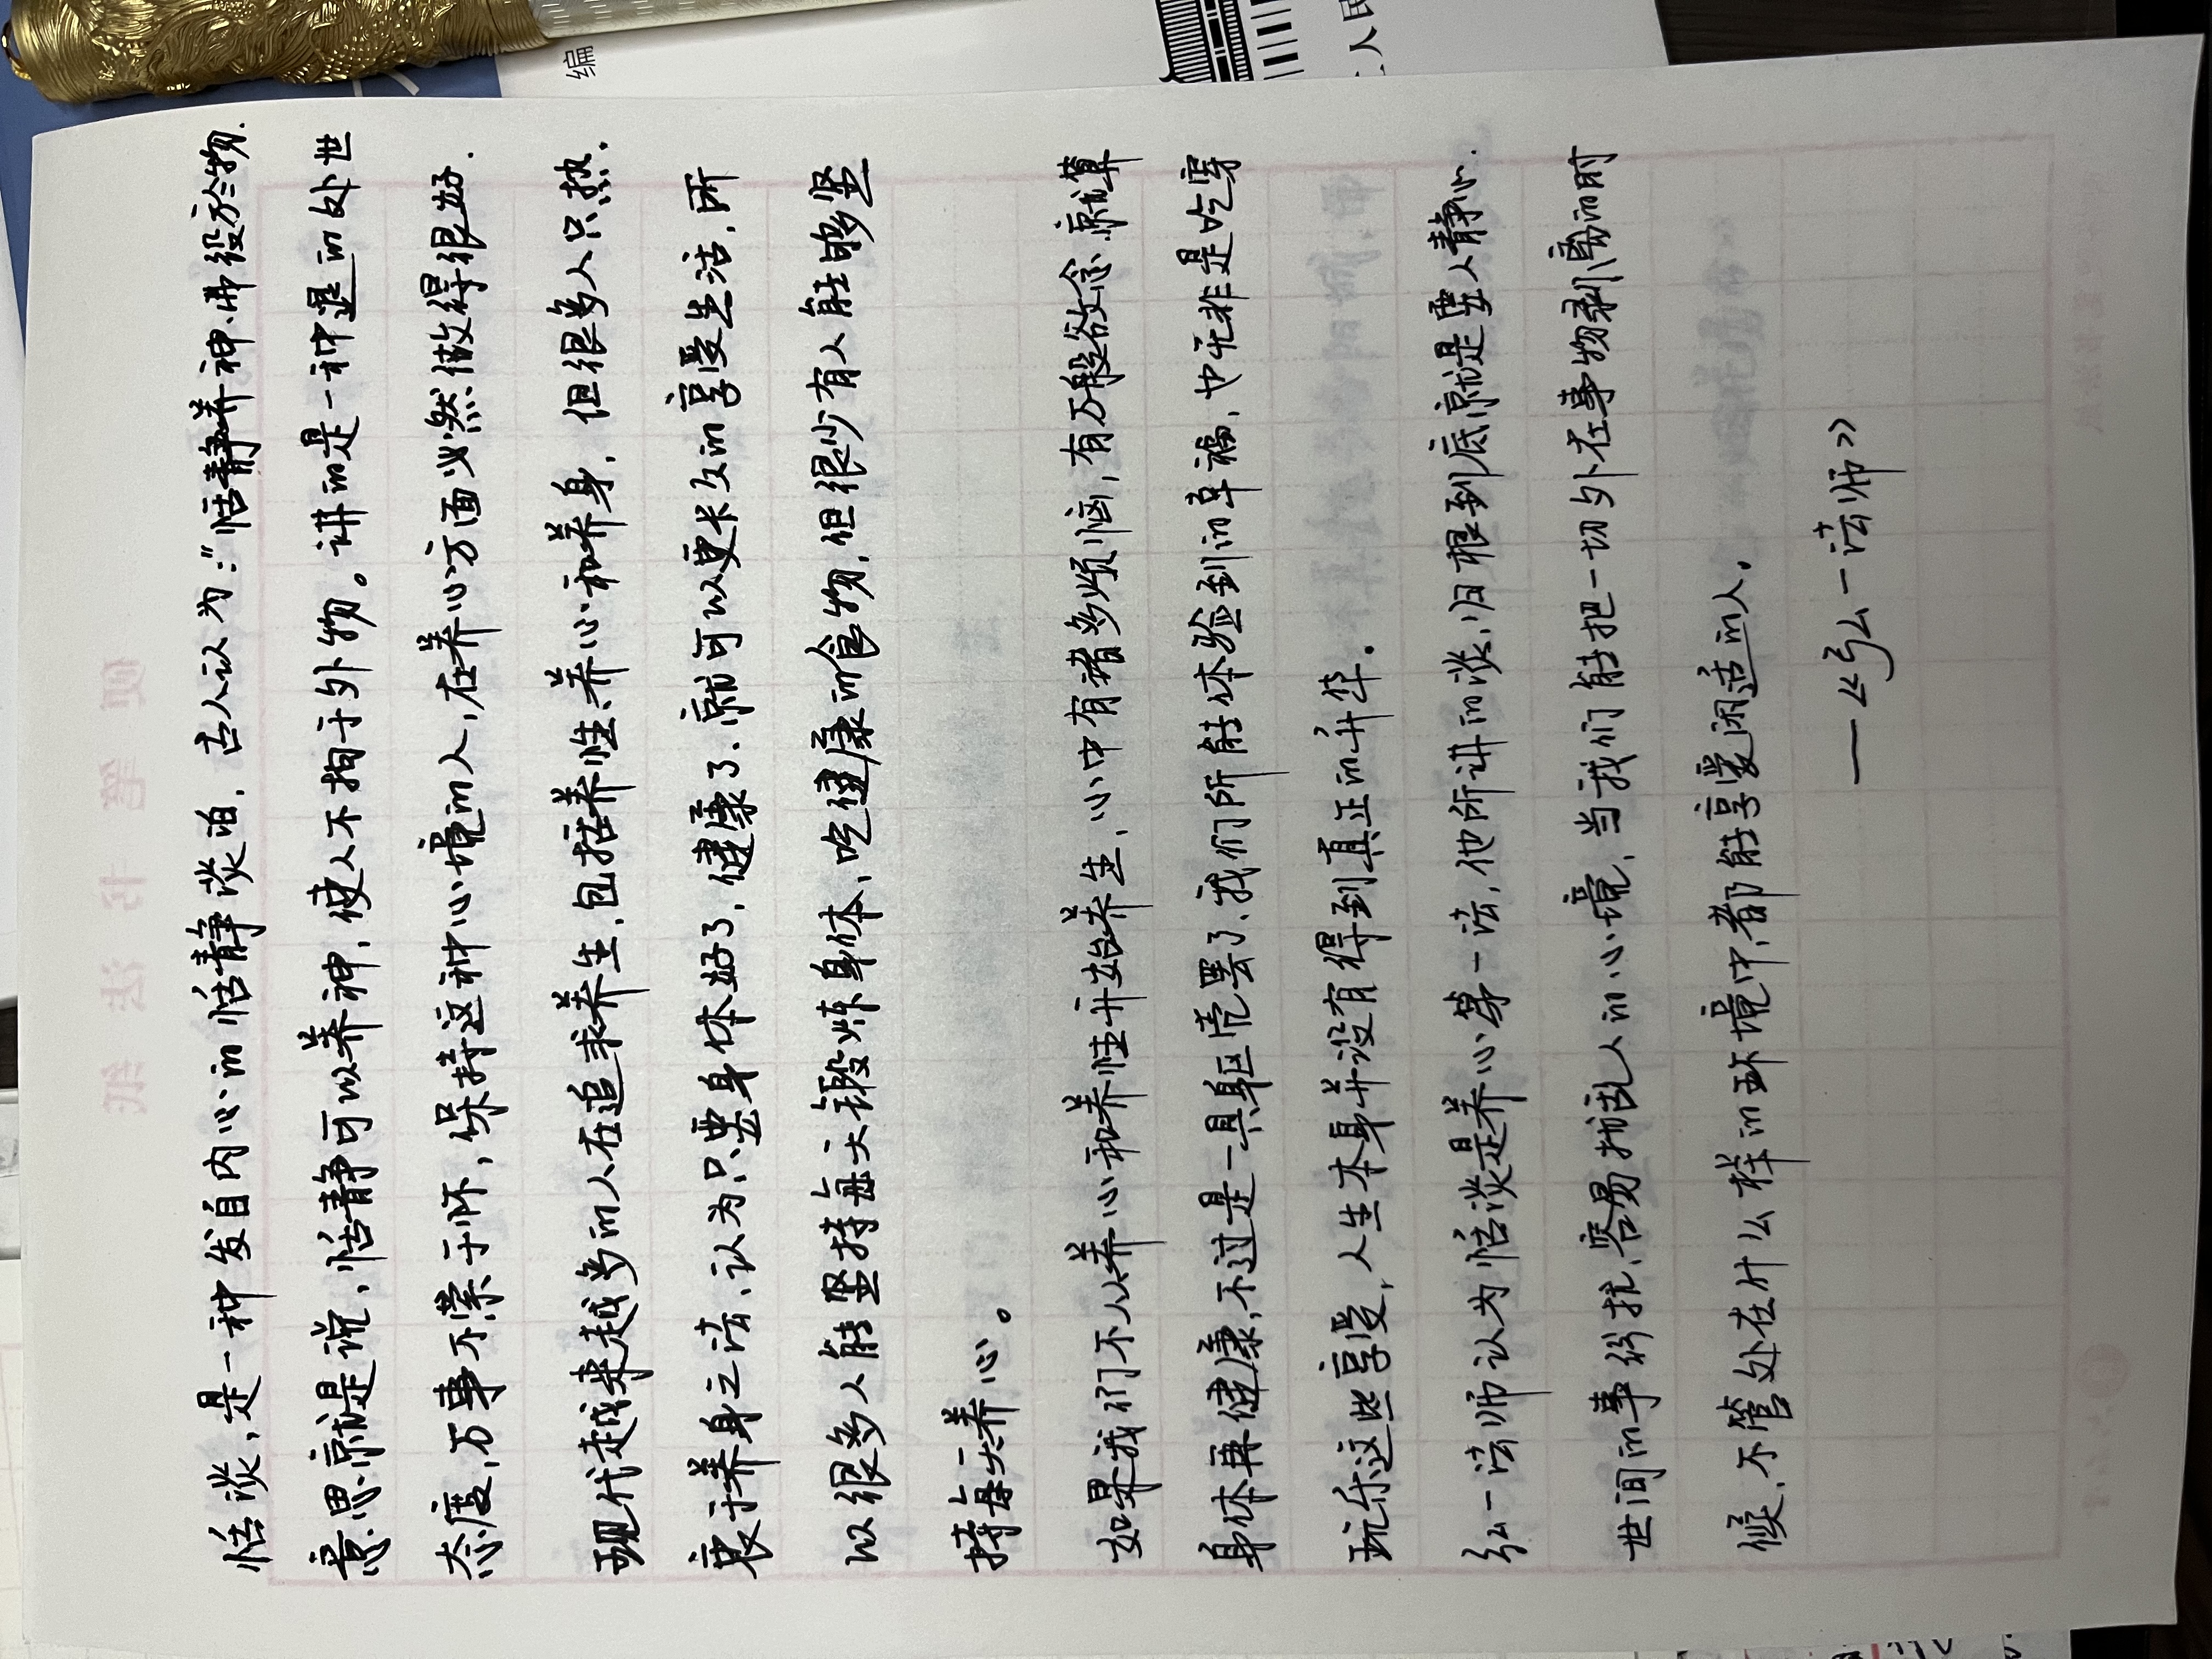 恬淡,是一种发自内心的恬静淡泊,古人认为:"恬静养神,弗役于物.
意思就是说,恬静可以养神,使人不拘于外物。讲的是一种退的处世
态度,万事不萦于怀,保持这种心境的人,在养心方面必然做得很好.
现代越来越多的人在追求养生,包括养性、养心和养身,但很多人只热.
衷于养身之法、认为只要身体好了,健康了.就可以更长久的享受生活,所
以很多人能坚持每天锻炼身体、吃健康的食物,但很少有人能够坚
持每天养心。
如果我们不从养心和养性开始养生,心中有诸多烦恼,有万般欲念.就算
身体再健康,不过是一具躯壳罢了、我们所能体验到的幸福,也无非是吃穿
玩乐这些享受,人生本身并没有得到真正的升华.
弘一法师认为恬淡是养心第一法,他所讲的淡,归根到底就是要人静心.
世间的事纷扰,容易扰乱人的心境,当我们能把一切外在事物剥离的时
候,不管处在什么样的环境中,都能享受闲适的人.
—《弘一法师》
编
人民
硬笔书法纸